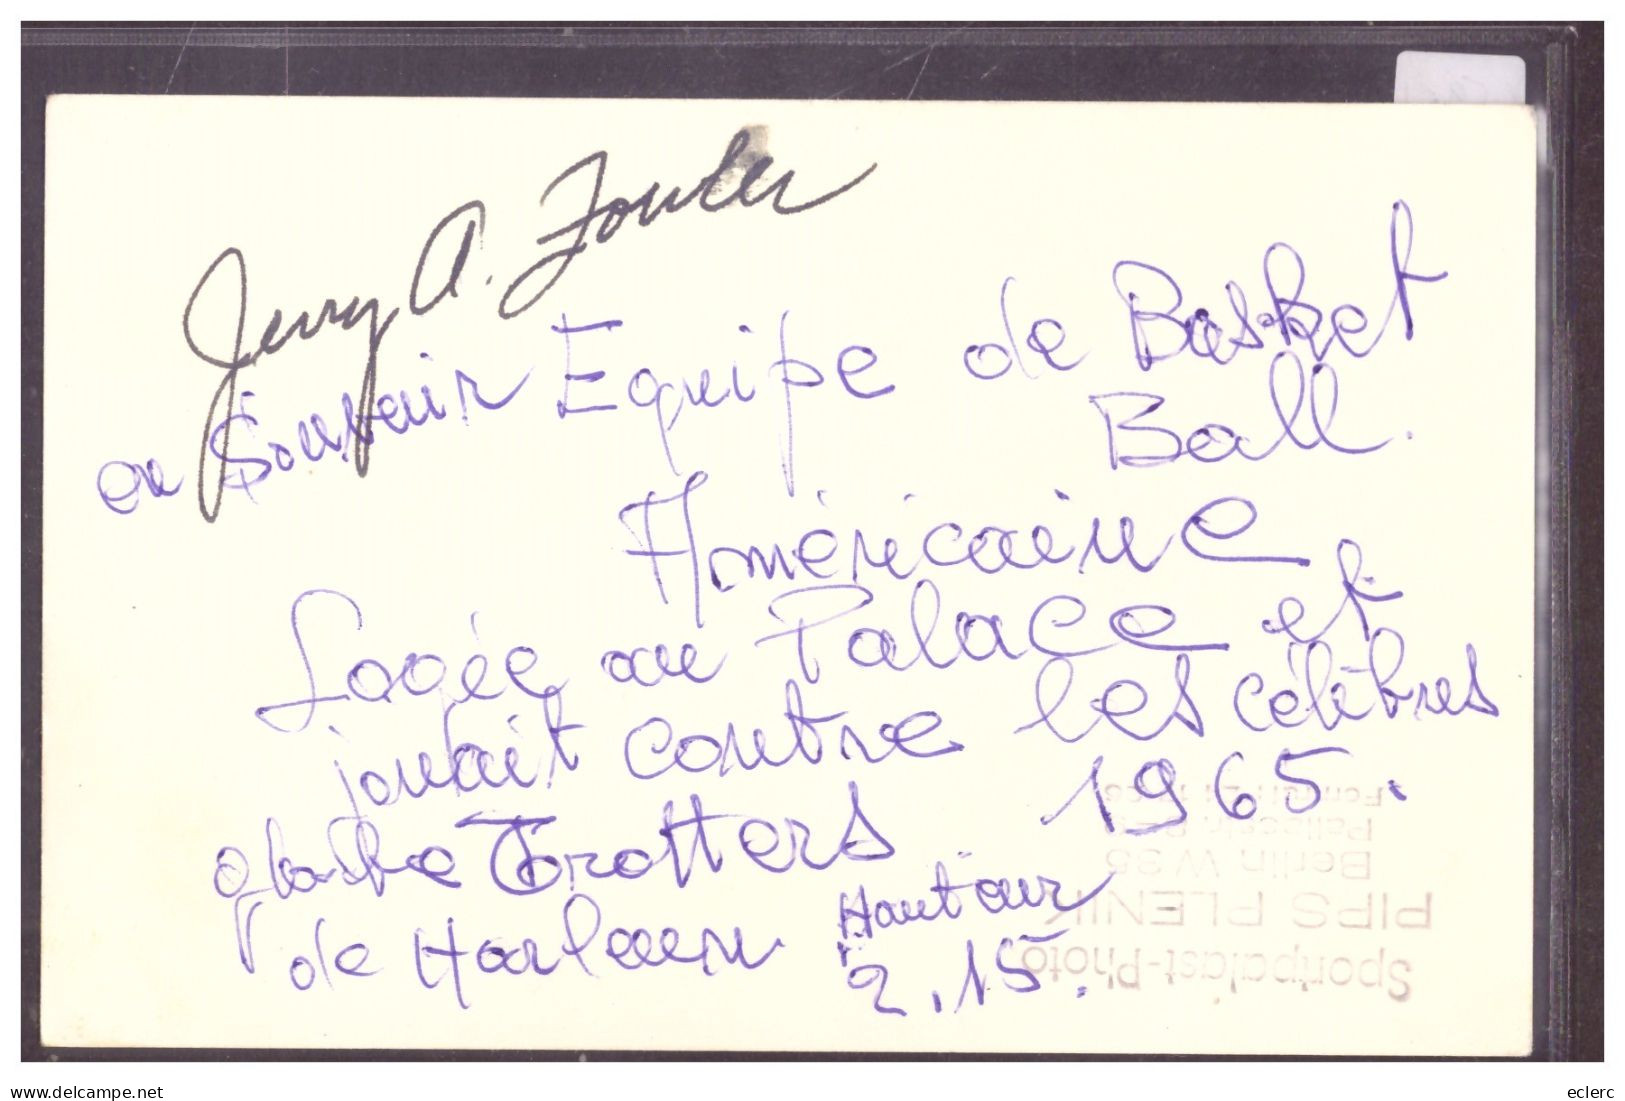 Jerry A. Fowler
en Souvenir Equipe de Basket
Ball.
Américaine
Logée au Palace et
jouait contre les célèbres
globe Trotters 1965.
de Harlaem Hauteur
2.15.
Sportpalast-Photo
PIPS PLENIK
Berlin W 35
eclerc